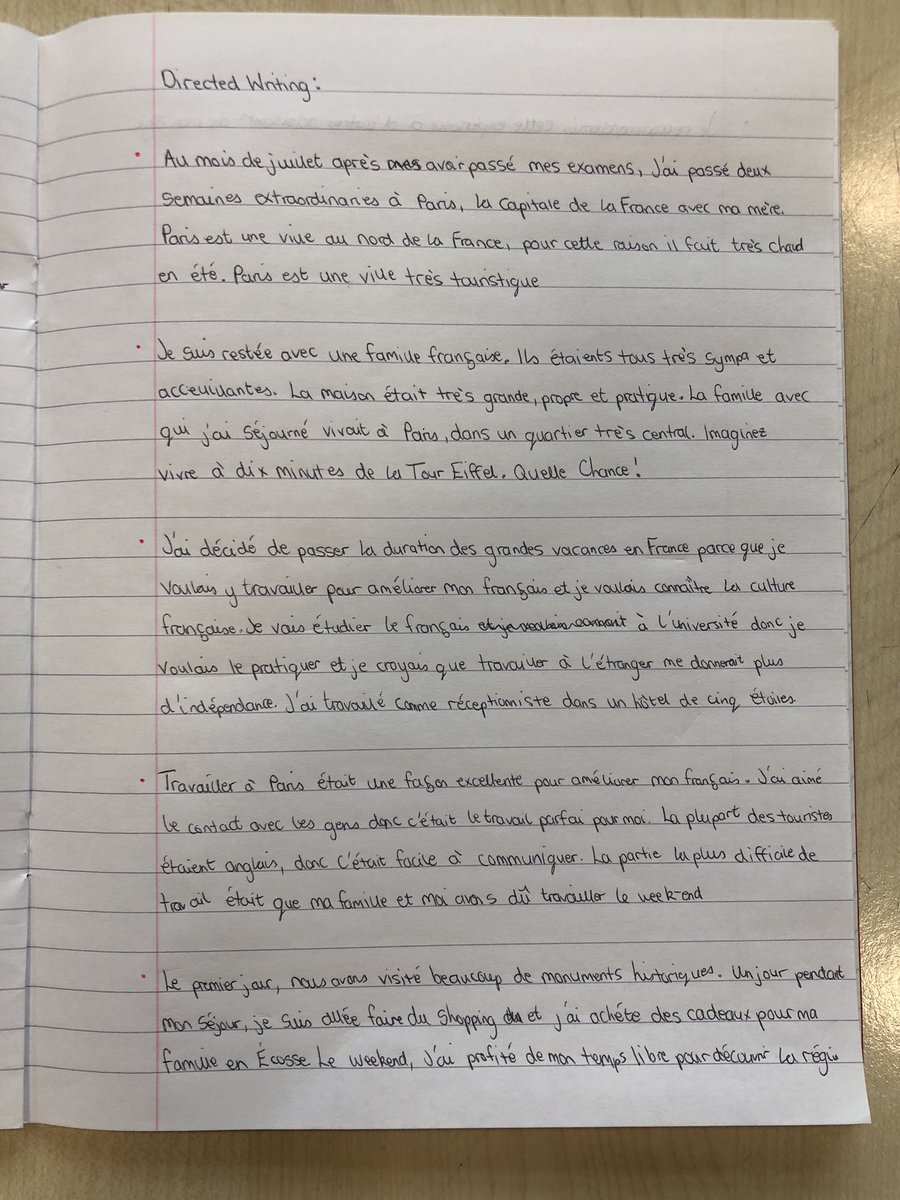 Directed Writing:
Au mois de juillet après avoir passé mes examens, J'ai passé deux
semaines extraordinaries à Paris, la Capitale de la France avec ma mère.
Paris est une ville au nord de la France, pour cette raison il fait très chaud
en été. Paris est une ville très touristique
Je suis restée avec une famille française. Ils étaients tous très sympa et
acceuillantes. La maison était très grande, propre et pratique. La famille avec
qui j'ai séjourné vivait à Paris, dans un quartier très central. Imaginez
vivre à dix minutes de la Tour Eiffel. Quelle Chance!
J'ai décidé de passer la duration des grandes vacances en France parce que je
voulais y travailler pour améliorer mon français et je voulais connaître la culture
française. Je vais étudier le français à l'université donc je
voulais le pratiquer et je croyais que travailler à l'étranger me donnerait plus
d'indépendance. J'ai travaillé comme réceptioniste dans un hôtel de cinq étoiles.
Travailler à Paris était une façon excellente pour améliorer mon français. J'ai aimé
le contact avec les gens donc c'était le travail parfai pour moi. La plupart des touristes
étaient anglais, donc c'était facile à communiquer. La partie la plus difficile de
travail était que ma famille et moi avons dû travailler le week-end
Le premier jour, nous avons visité beaucoup de monuments historiques. Un jour pendant
mon séjour, je suis allée faire du shopping et j'ai achéte des cadeaux pour ma
famille en Écosse Le weekend, J'ai profité de mon temps libre pour découvrir la régio